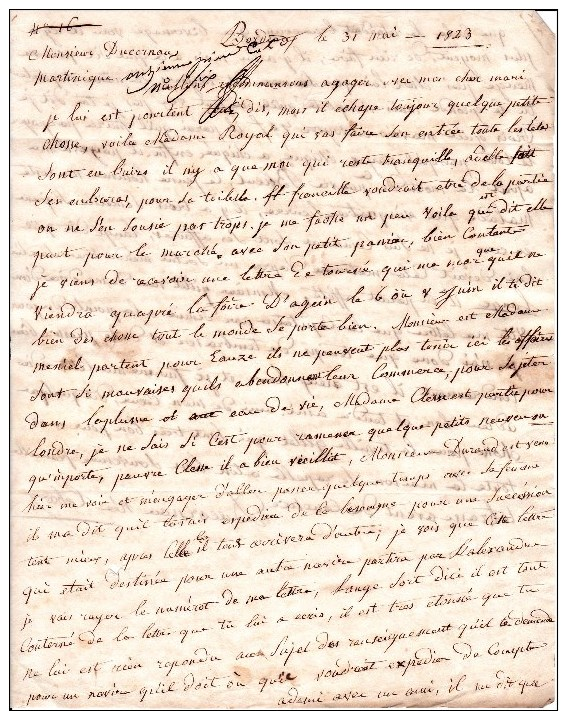 N° 16
Bordeaux le 31 mai — 1823
Monsieur Ducornau
Martinique
commensons agager avec mon cher mari
je lui est pourtent dis, mais il echape toujour quelque petite
chosse, voila Madame Royal qui vas faire son entrée toute les tetes
sont en l'aires il ny a que moi qui reste tranquille, adelle fait
ses enbaras, pour sa toilette. et francille voudrait etre de la partie
on ne s'en sousie pas trops. je me fache un peu voila qu'on dit elle
part pour le marché, avec son petit panier, bien contante
je viens de recevoir une lettre de qui me marque qu'il ne
viendra quaprié la foire D'agein le 6 ou v juin il te dit
bien des chose tout le monde se porte bien. Monsieur est Madame
mesniel partent pour Eauze ils ne peuvent plus tenir ici les affaire
sont si mauvaises quils abendonner leur commerce, pour se jeter
dans leplume et eau de vie, Madame Clem est partie pour
londre, je ne sais si c'est pour ramener quelque petits neuveu ou
qu'importe, pauvre Clem il a bien vieillit, Monsieur Durand est venu
hier me voir et mengager d'allen passer quelque temps avec sa femme
il ma dit qu'il tavais expedier de la pour une sucession
tent mieux, apres celle il tens arrivera d'autre; je vois que cette lettre
qui etait destinée pour une autre navire partira par L'alexandre
je vais rayer le numérot de ma lettre, Lange sort dici il est tout
Conterné de la lettre que tu lui a ecris, il est tres etonée que tu
ne lui est rien repondu au sujet des ransenguement qu'il te demende
pour un navire qu'il doit ou qu'il voudrait expedier du Compte
ademi avec un ami, il me dit que